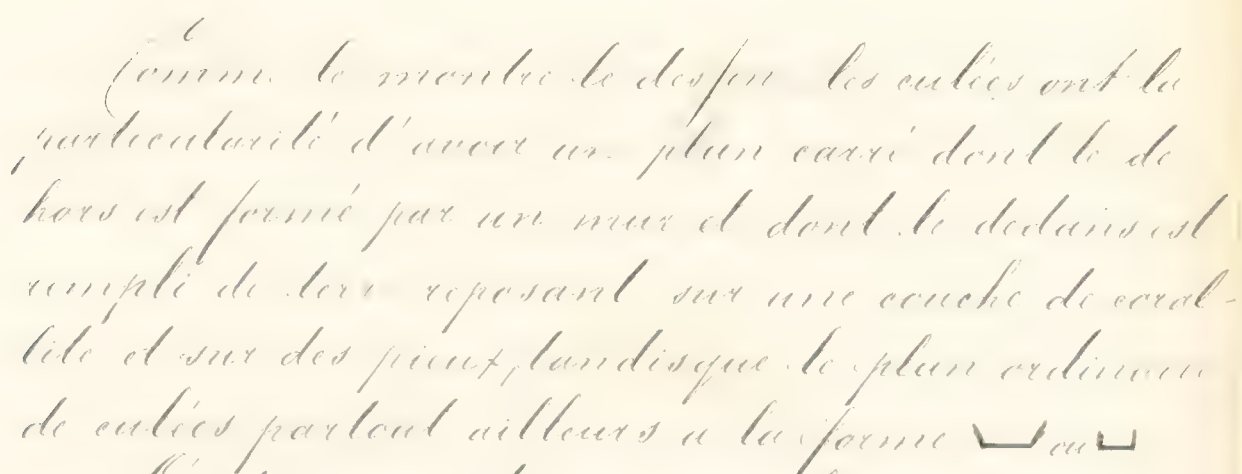 Comme le montre le dessin les culées ont la
particularité d'avoir un plan carré dont le de
hors est formé par un mur et dont le dedans est
rempli de terre reposant sur une couche de coral-
lite et sur des pieux, tandisque le plan ordinaire
de culées partout ailleurs a la forme ou